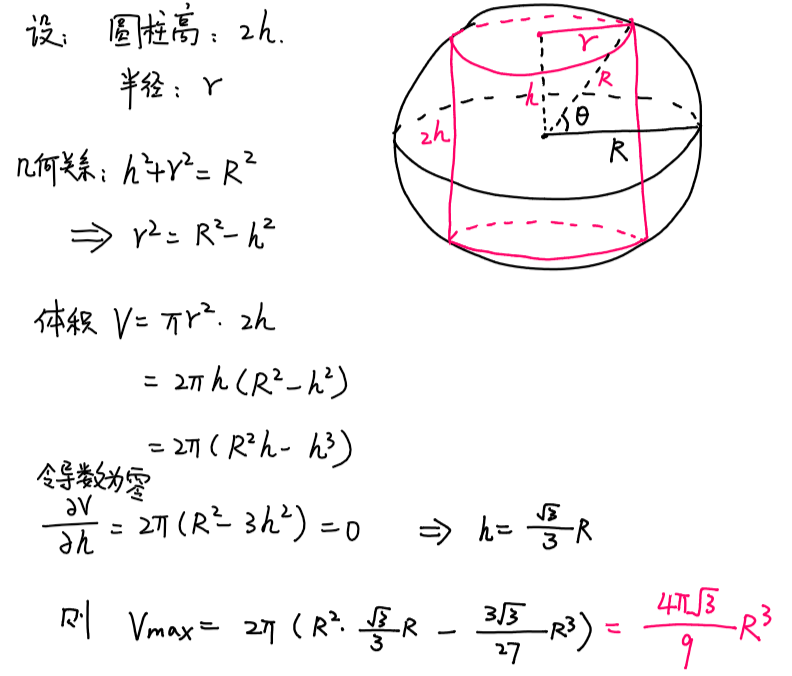 设: 圆柱高: 2h.
半径: r
几何关系: h²+r²=R²
⇒ r²=R²-h²
体积 V=πr²·2h
=2πh(R²-h²)
=2π(R²h-h³)
令导数为零
∂V/∂h=2π(R²-3h²)=0 ⇒ h=√3/3 R
则 Vmax=2π(R²·√3/3 R - 3√3/27 R³)=4π√3/9 R³
r
h
R
2h
θ
R